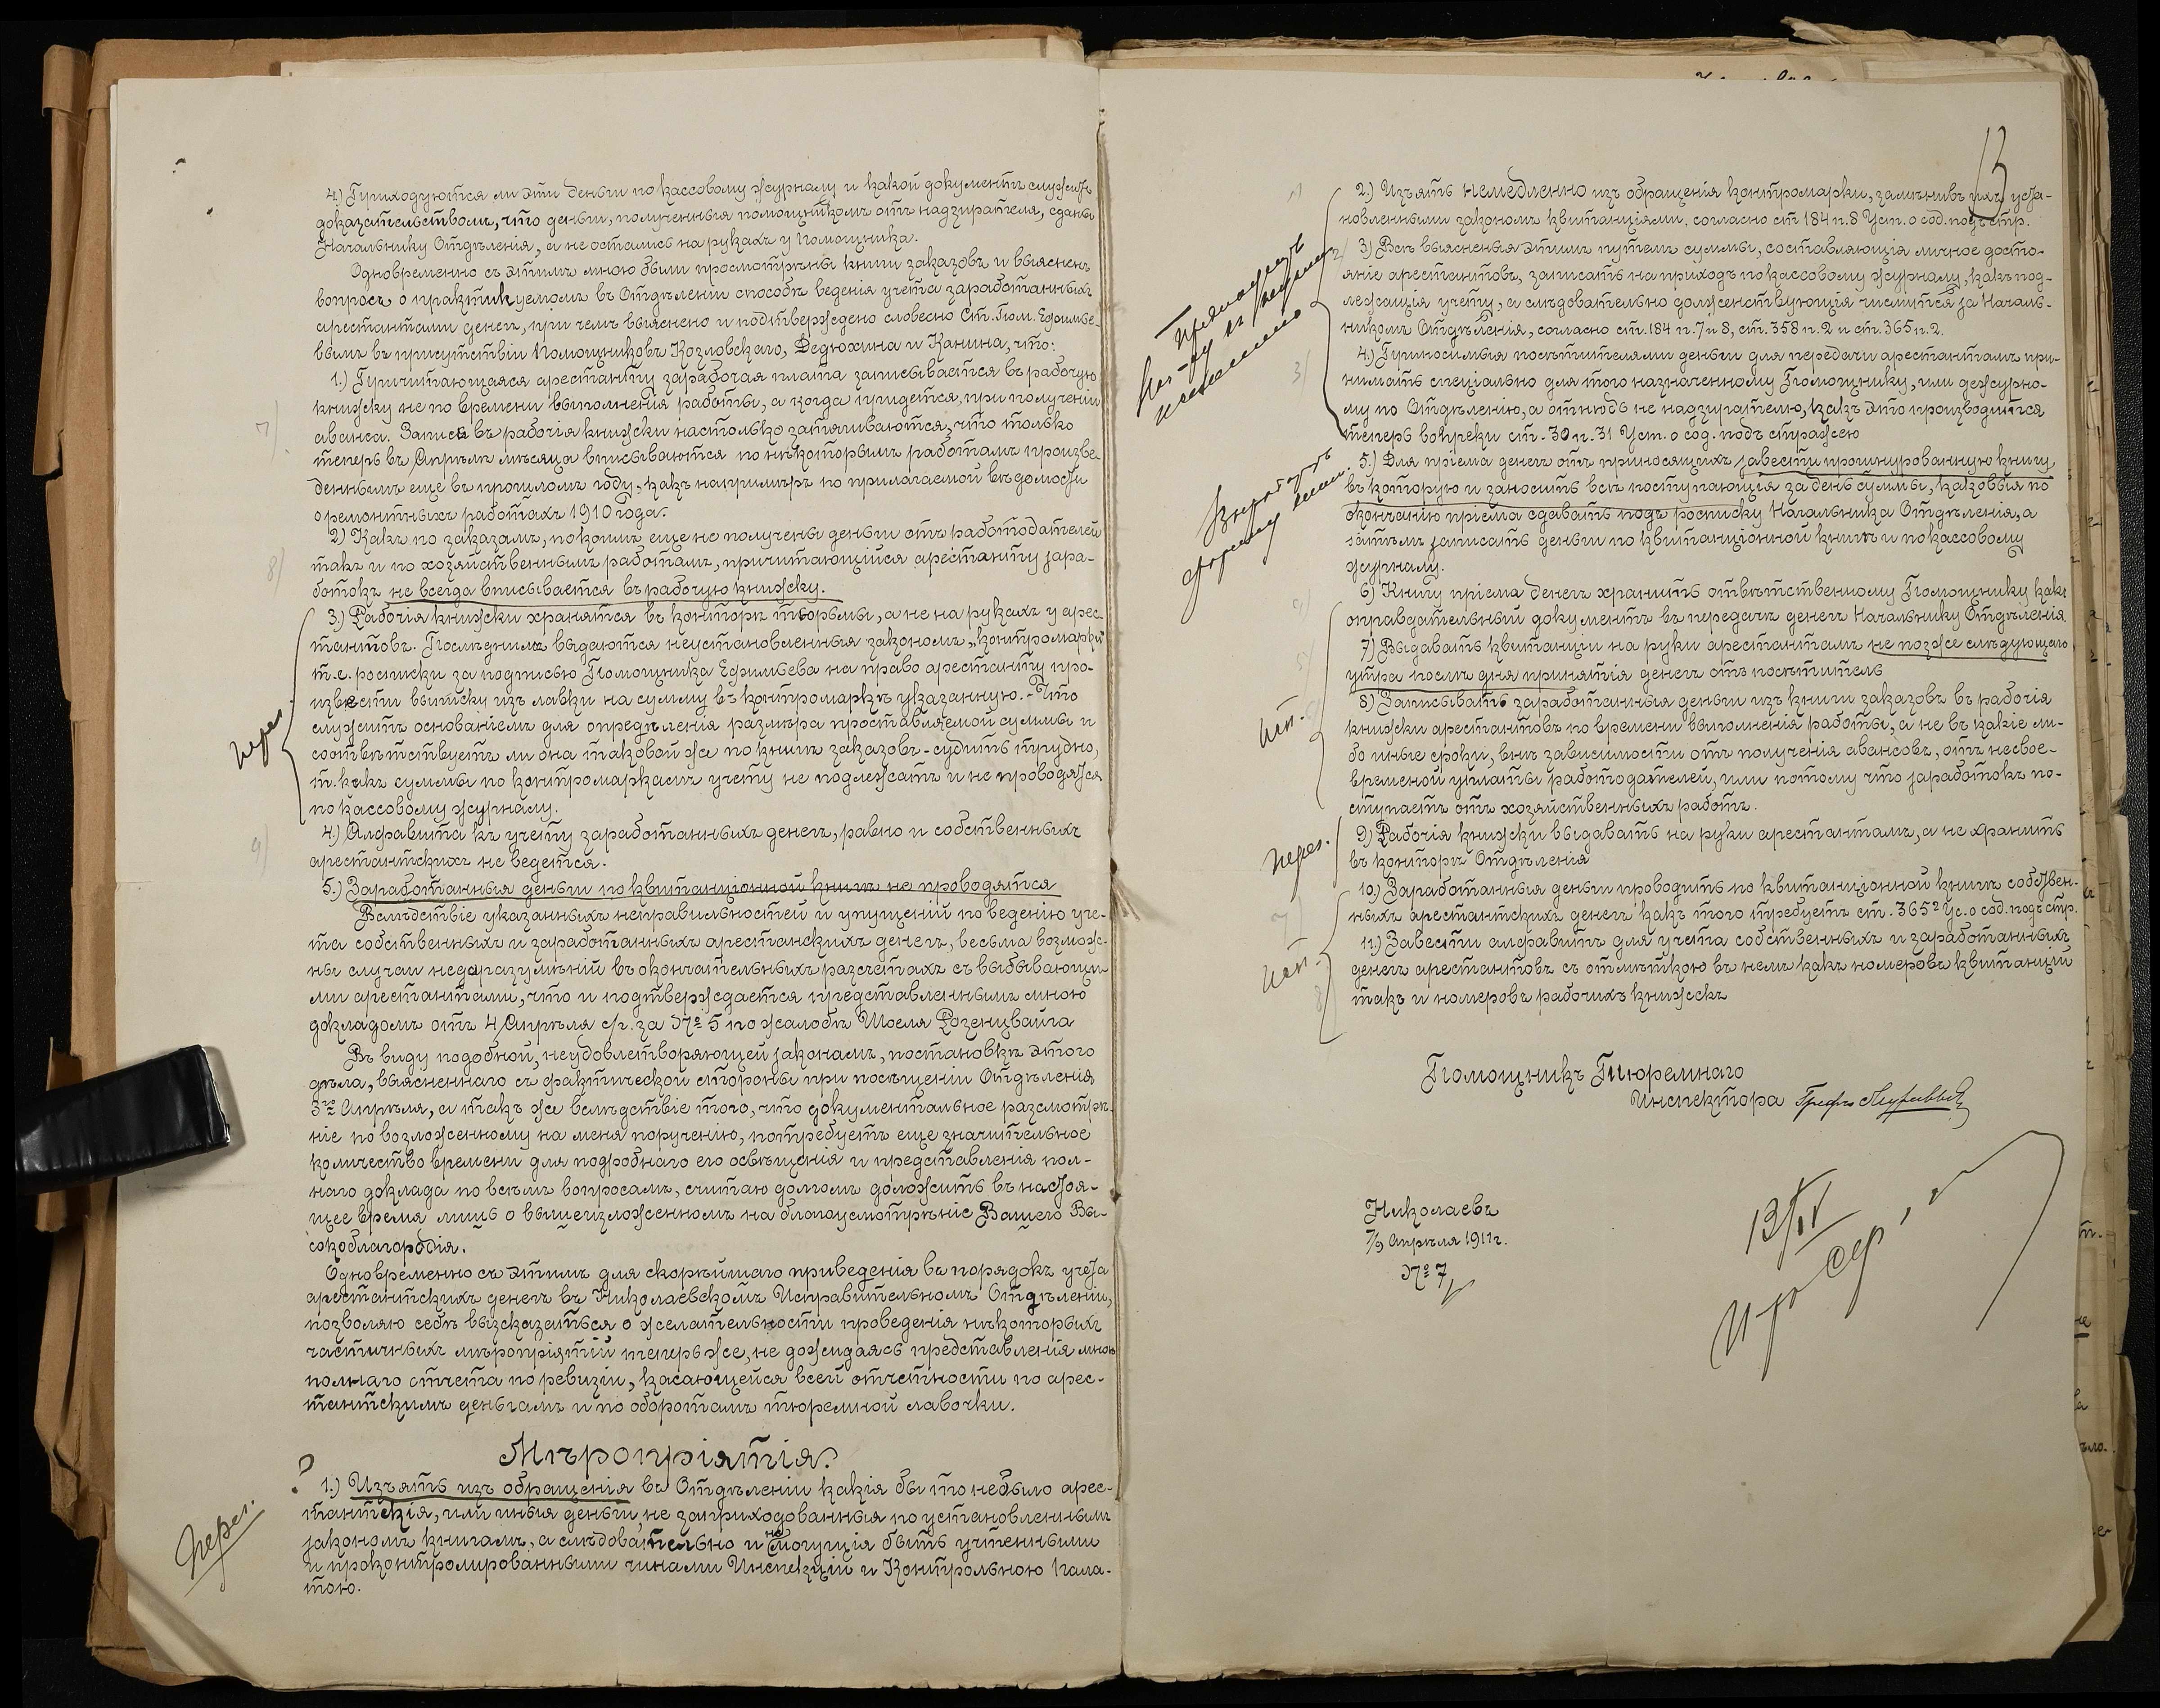 4) Приходуются ли эти деньги по кассовому журналу и какой документъ служитъ
доказательствомъ, что деньги, полученныя помощникомъ отъ надзирателя, сданы
Начальнику Отдѣленія, а не остались на рукахъ у Помощника.
Одновременно съ этимъ мною были просмотрѣны книги заказовъ и выясненъ
вопросъ о практикуемомъ въ Отдѣленіи способѣ веденія учета заработанныхъ
арестантами денегъ, при чемъ выяснено и подтверждено словесно Ст. Пом. Ефимье-
вымъ въ присутствіи Помощниковъ Козловскаго, Дедюхина и Канина, что:
1.) Причитающаяся арестанту заработая плата записывается въ рабочую
книжку не по времени выполненія работы, а когда придется, при полученіи
аванса. Записи въ рабочія книжки настолько затягиваются, что только
теперь въ Апрѣлѣ мѣсяцѣ вписываются по нѣкоторымъ работамъ произве-
деннымъ еще въ прошломъ году, какъ напримѣръ по прилагаемой вѣдомости
о ремонтныхъ работахъ 1910 года.
7).
2) Какъ по заказамъ, по коимъ еще не получены деньги отъ работодателей
такъ и по хозяйственнымъ работамъ, причитающійся арестанту зара-
ботокъ не всегда вписывается въ рабочую книжку.
8)
3.) Рабочія книжки хранятся въ конторѣ тюрьмы, а не на рукахъ у арес-
тантовъ. Послѣднимъ выдаются неустановленныя закономъ „контромарки"
т.е. росписки за подписью Помощника Ефимьева на право арестанту про-
извести выписку изъ лавки на сумму въ контромаркѣ указанную. - Что
служитъ основаніемъ для опредѣленія размѣра проставляемой суммы и
соотвѣтствуетъ ли она таковой же по книгѣ заказовъ - судить трудно,
т. какъ суммы по контромаркамъ учету не подлежатъ и не проводятся
по кассовому журналу.
перег.
4) Алфавита къ учету заработанныхъ денегъ, равно и собственныхъ
арестантскихъ не ведется.
9)
5.) Заработанныя деньги по квитанціонной книгѣ не проводятся
Вслѣдствіе указанныхъ неправильностей и упущеній по веденію уче-
та собственныхъ и заработанныхъ арестанскихъ денегъ, весьма возмож-
ны случаи недоразумѣній въ окончательныхъ разсчетахъ съ выбывающи-
ми арестантами, что и подтверждается представленнымъ мною
докладомъ отъ 4 Апрѣля с/г. за № 5 по жалобѣ Шоеля Розенцвайга
Въ виду подобной, неудовлетворяющей законамъ, постановкѣ этого
дѣла, выясненнаго съ фактической стороны при посѣщеніи Отдѣленія
3го Апрѣля, а такъ же вслѣдствіе того, что документальное разсмотрѣ-
ніе по возложенному на меня порученію, потребуетъ еще значительное
количество времени для подробнаго его освѣщенія и представленія пол-
наго доклада по всѣмъ вопросамъ, считаю долгомъ доложить въ настоя-
щее время лишь о вышеизложенномъ на благоусмотрѣніе Вашего Вы-
сокоблагородія.
Одновременно съ этимъ для скорѣйшаго приведенія въ порядокъ учета
арестантскихъ денегъ въ Николаевскомъ Исправительномъ Отдѣленіи,
позволяю себѣ высказаться о желательности проведенія нѣкоторыхъ
частичныхъ мѣропріятій теперь же, не дожидаясь представленія мною
полнаго отчета по ревизіи, касающейся всей отчетности по арес-
тантскимъ деньгамъ и по оборотамъ тюремной лавочки.
Мѣропріятія.
?
1.) Изъять изъ обращенія въ Отдѣленіи какія бы то небыло арес-
тантскія, или иныя деньги, не заприходованныя по установленнымъ
закономъ книгамъ, а слѣдовательно и не могущія быть учтенными
и проконтролированными чинами Инспекціи и Контрольною Пала-
тою.
Перег.
13
2.) Изъять немедленно изъ обращенія контромарки, замѣнивъ ихъ уста-
новленными закономъ квитанціями, согласно ст 184 п. 8 Уст. о сод. подъ стр.
3) Всѣ выясненыя этимъ путемъ суммы, составляющія личное досто-
яніе арестантовъ, записать на приходъ по кассовому журналу, какъ под-
лежащія учету, а слѣдовательно долженствующія числится за Началь-
никомъ Отдѣленія, согласно ст. 184 п. 7 и 8, ст. 358 п. 2 и ст. 365 п. 2.
4.) Приносимыя посѣтителями деньги для передачи арестантамъ при-
нимать спеціально для того назначенному Помощнику, или дежурно-
му по Отдѣленію, а отнюдь не надзирателю, какъ это производится
теперь вопреки ст. 30 п. 31 Уст. о сод. подъ стражею
5.) Для пріема денегъ отъ приносящихъ завести прошнурованную книгу,
въ которую и заносить всѣ поступающія за день суммы, каковыя по
окончанію пріема сдавать подъ росписку Начальника Отдѣленія, а
затѣмъ записать деньги по квитанціонной книгѣ и по кассовому
журналу.
6) Книгу пріема денегъ хранить отвѣтственному Помощнику какъ
оправдательный документъ въ передачѣ денегъ Начальнику Отдѣленія
7) Выдавать квитанціи на руки арестантамъ не позже слѣдующаго
утра послѣ дня принятія денегъ отъ посѣтителъ
8) Записывать заработанныя деньги изъ книги заказовъ въ рабочія
книжки арестантовъ по времени выполненія работы, а не въ какіе ли-
бо иные сроки, внѣ зависимости отъ полученія авансовъ, отъ несвое-
временой уплаты работодателей, или потому что заработокъ по-
ступаетъ отъ хозяйственныхъ работъ.
9) Рабочія книжки выдавать на руки арестантамъ, а не хранить
въ конторѣ Отдѣленія
перег.
10.) Заработанныя деньги проводить по квитанціонной книгѣ собствен-
ныхъ арестантскихъ денегъ какъ того требуетъ ст. 365² Ус. о сод. подъ стр.
11.) Завести алфавитъ для учета собственныхъ и заработанныхъ
денегъ арестантовъ съ отмѣткою въ немъ какъ номеровъ квитанцій
такъ и номеровъ рабочихъ книжекъ
Помощникъ Тюремнаго
Инспектора Графъ Муравьев
Николаевъ
7/9 Апрѣля 1911г.
№ 7
13/IV